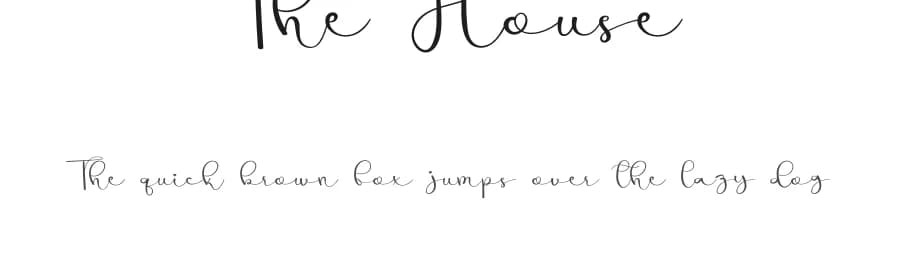 The House
The quick brown fox jumps over the lazy dog